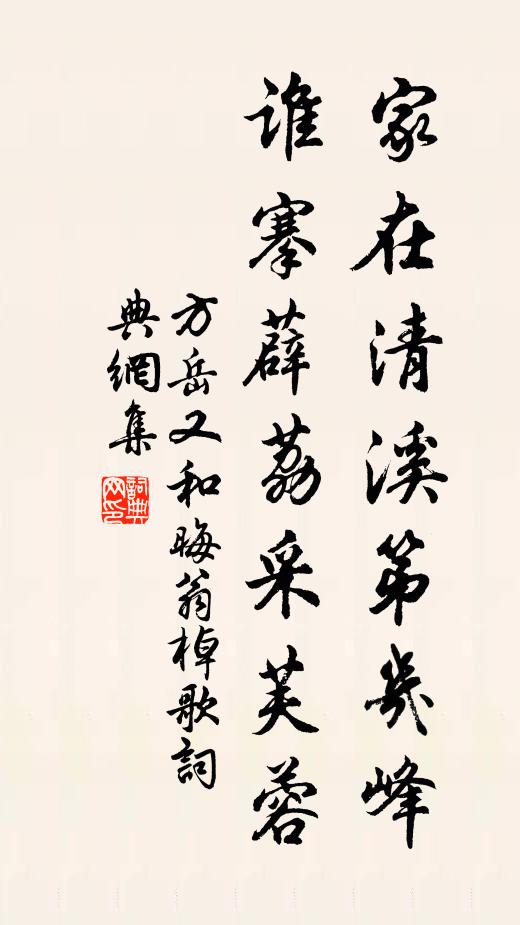 家在清溪第幾峰
谁搴薜荔采芙蓉
方岳又和晦翁棹歌詞
典網集
詞典网印